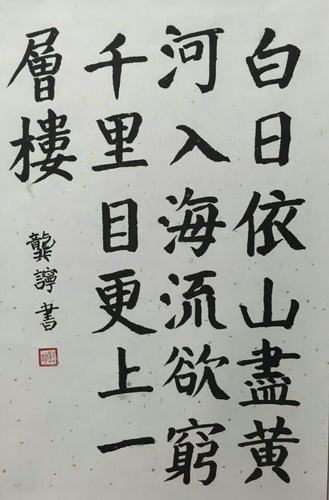 白日依山盡黃
河入海流欲窮
千里目更上一
層樓
龔諄書